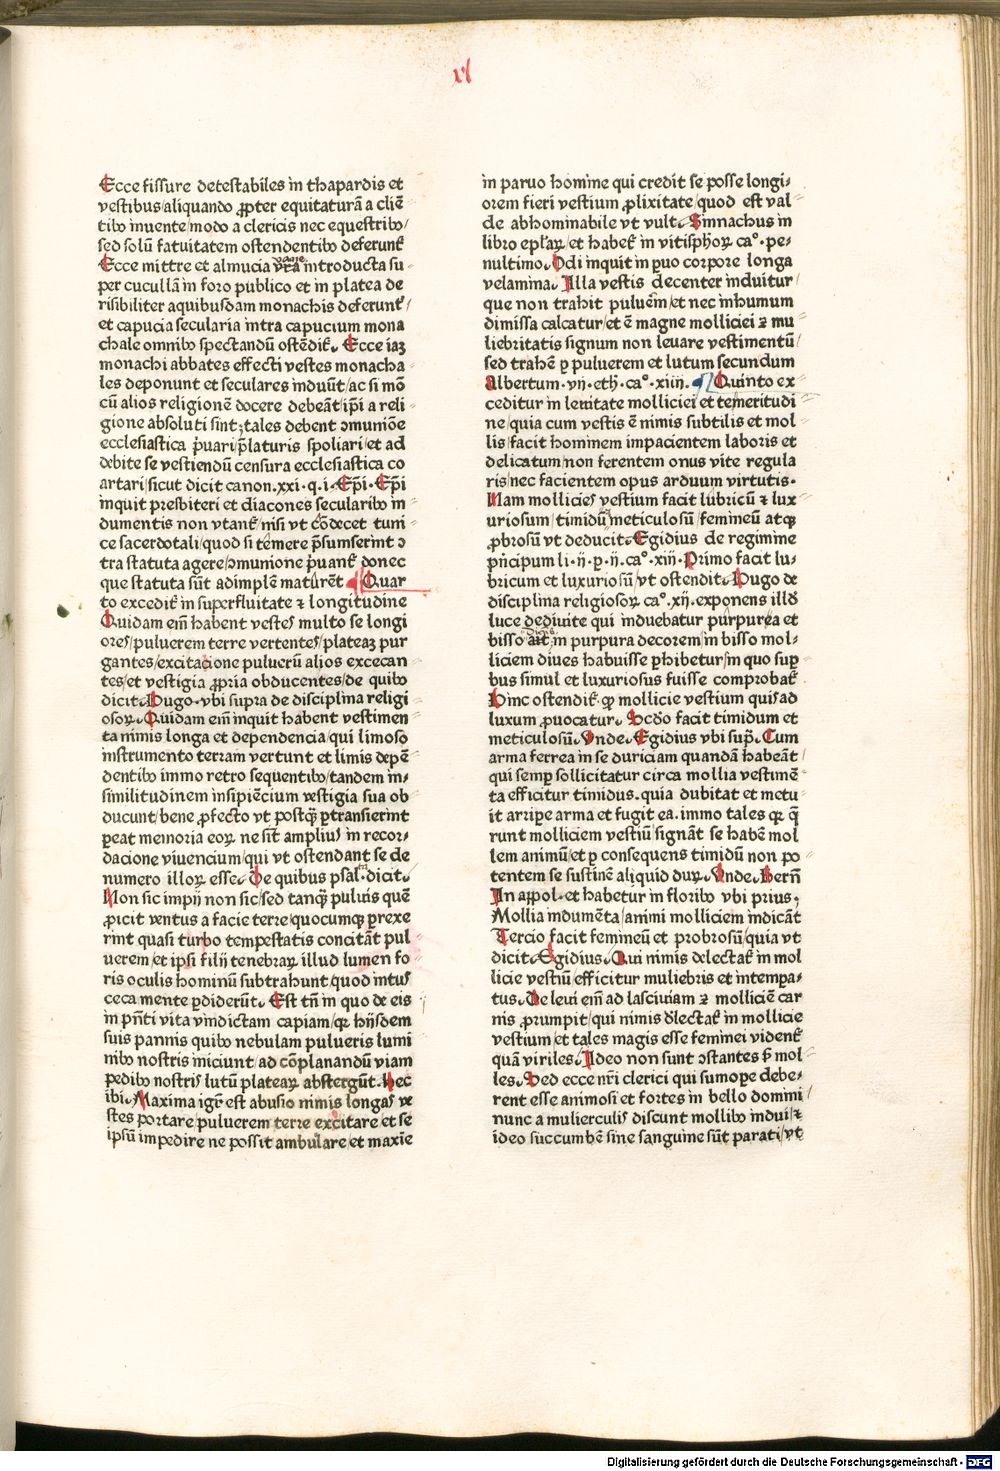 xl
Ecce fissure detestabiles in thapardis et
vestibus/aliquando ꝓpter equitaturā a cliē
tibꝰ inuente/modo a clericis nec equestribꝰ/
sed solū fatuitatem ostendentibꝰ deferunt͛
Ecce mittre et almucia introducta su⸗
per cucullā in foro publico et in platea de
risibiliter aquibusdam monachis deferunt͛/
et capucia secularia intra capucium mona
chale omnibꝰ spectandū ostēdit͛. Ecce iaꝫ
monachi abbates effecti vestes monacha⸗
les deponunt et seculares induūt/ac si mō
cū alios religionē docere debeāt/ip̄i a reli
gione absoluti sint/tales debent ↄmuniōe
ecclesiastica p̄uari/p̄laturis spoliari/et ad
debite se vestiendū censura ecclesiastica co
artari/sicut dicit canon.xxi.q.i. Ep̄i.Ep̄i
inquit presbiteri et diacones secularibꝰ in
dumentis non vtant͛/nisi vt cōdecet tuni⸗
ce sacerdotali/quod si temere p̄sumserint ↄ
tra statuta agere/ↄmunione p̄uant͛ donec
que statuta sūt adimplē maturēt Quar
to excedit͛ in superfluitate ⁊ longitudine
Quidam em̄ habent vestes multo se longi
ores/puluerem terre vertentes/plateaꝫ pur
gantes/excitacione puluerū alios excecan
tes/et vestigia ꝓpria obducentes/de quibꝰ
dicit.Hugo.vbi supra de disciplina religi
osoꝝ.Quidam em̄ inquit habent vestimen
ta nimis longa et dependencia/qui limoso
instrumento terram vertunt et limis depē
dentibꝰ immo retro sequentibꝰ/tandem in⸗
similitudinem insipiēcium vestigia sua ob
ducunt/bene ꝓfecto vt postqꝫ ꝑtransierint
ꝑeat memoria eoꝝ ne sit amplius in recor⸗
dacione viuencium/qui vt ostendant se de
numero illoꝝ esse. De quibus psal.dicit.
Non sic impij non sic/sed tanqꝫ puluis quē
ꝓicit ventus a facie terre/quocumqꝫ ꝑrexe
rint quasi turbo tempestatis concitāt pul
uerem/et ipsi filij tenebraꝝ illud lumen fo⸗
ris oculis hominū subtrahunt quod intus
ceca mente ꝑdiderūt. Est tn̄ in quo de eis
in pn̄ti vita vindictam capiam/qꝛ hijsdem
suis pannis quibꝰ nebulam pulueris lumi
nibꝰ nostris iniciunt/ad cōplanandū viam
pedibꝰ nostris lutū plateaꝝ abstergūt.Hec
ibi.Maxima igr̄ est abusio nimis longas ve
stes portare/puluerem terre excitare et se
ipsū impedire ne possit ambulare/et maxie
in paruo homine qui credit se posse longi⸗
orem fieri vestium ꝓlixitate/quod est val⸗
de abhominabile vt vult. Simnachus in
libro epl̄aꝝ/et habet͛ in vitisph̄oꝝ caᵒ.pe⸗
nultimo.Odi inquit in ꝑuo corpore longa
velamina. Illa vestis decenter induitur
que non trahit puluem̄/et nec inhumum
dimissa calcatur/et ē magne molliciei ⁊ mu
liebritatis signum non leuare vestimentū
sed trahē ꝑ puluerem et lutum secundum
Albertum.vij.eth̄.caᵒ.xiiij. Quinto ex
ceditur in leuitate molliciei et temeritudi⸗
ne/quia cum vestis ē nimis subtilis et mol⸗
lis/facit hominem impacientem laboris et
delicatum/non ferentem onus vite regula
ris/nec facientem opus arduum virtutis.
Nam mollicies vestium facit lubricū ⁊ lux
uriosum/timidū meticulosū/femineū atqꝫ
ꝓbrosū vt deducit.Egidius de regimine
prīncipum li.ij.p.ij.caᵒ.xiij.Primo facit lu⸗
bricum et luxuriosū/vt ostendit.Hugo de
disciplina religiosoꝝ caᵒ.xij.exponens illd̄
luce de diuite qui induebatur purpurea et
bisso in purpura decorem/in bisso mol⸗
liciem diues habuisse ꝑhibetur/in quo suꝑ
bus simul et luxuriosus fuisse comprobat͛
Hinc ostendit͛ ꝙ mollicie vestium quis ad
luxum ꝓuocatur.Scd̄o facit timidum et
meticulosū.Vnde.Egidius vbi sup̄.Cum
arma ferrea in se duriciam quandā habeāt
qui semꝑ sollicitatur circa mollia vestimē⸗
ta efficitur timidus.quia dubitat et metu⸗
it arriꝑe arma et fugit ea.immo tales qꝛ q̄
runt molliciem vestiū/signāt se habē mol
lem animū/et ꝑ consequens timidū non po
tentem se sustinē aliquid duꝝ.Vnde.Bern̄
In appol.et habetur in floribꝰ vbi prius.
Mollia indumēta/animi molliciem indicāt
Tercio facit femineū et probrosū/quia vt
dicit.Egidius.Qui nimis delectat͛ in mol
licie vestiū/efficitur muliebris et intempa⸗
tus.De leui em̄ ad lasciuiam ⁊ molliciē car
nis ꝓrumpit/qui nimis d̄lectat͛ in mollicie
vestium/et tales magis esse feminei vident͛
quā viriles.Ideo non sunt ↄstantes s̄ mol⸗
les.Sed ecce nr̄i clerici qui sumoꝑe debe⸗
rent esse animosi et fortes in bello domini
nunc a mulierculis discunt mollibꝰ indui/⁊
ideo succumbē sine sanguine sūt parati/vt
Digitalisierung gefördert durch die Deutsche Forschungsgemeinschaft - DFG